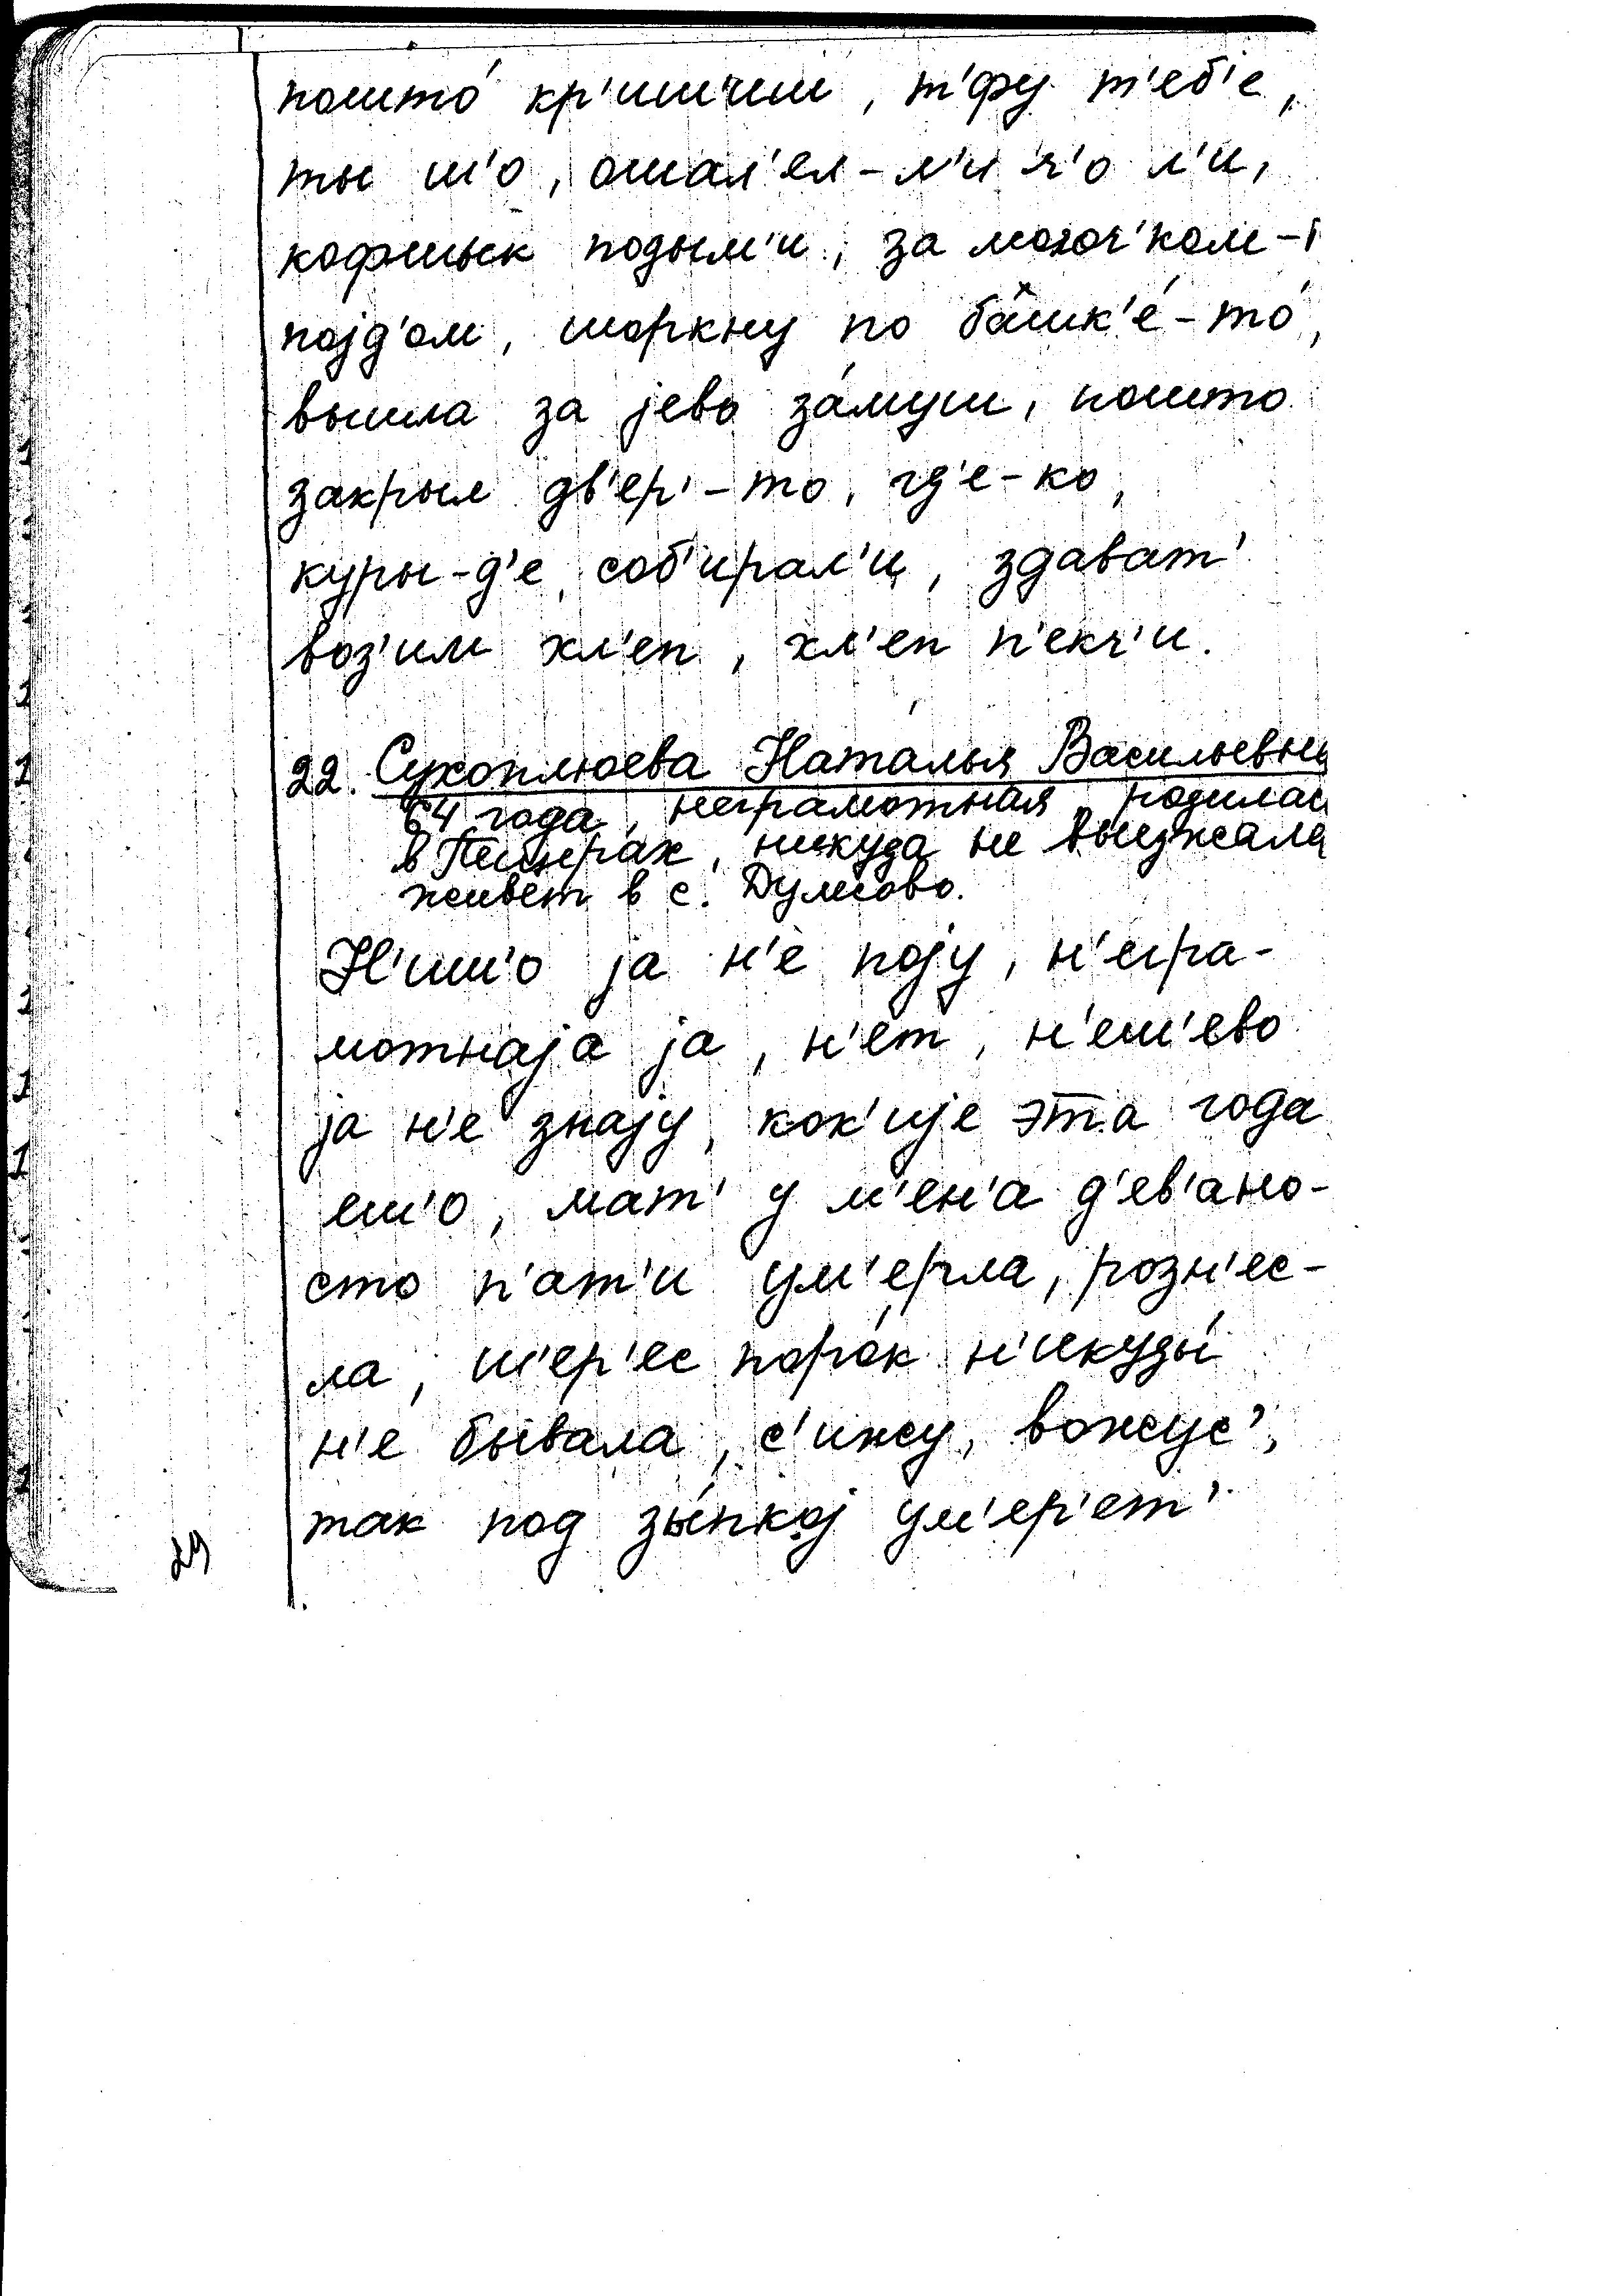 пошто́ кр'ич'иш, т'фу т'еб'е,
ты ш'о, ошал'ел-л'и ч'о л'и,
кофтык подым'и, за молоч'ком-
појд'ом, шоркну по ба̂шк'е́-то́,
вышла за јево за́муш, пошто
закрыл дв'ер'-то, гд'е-ко,
куры-д'е, соб'ирал'и, здават'
воз'им хл'еп, хл'еп п'екч'и.
22. Сухоплюева Наталья Васильевна
64 года, неграмотная, родилас
в никуда не выезжала
живет в с. Думсово.
Н'иш'о ја н'е појy, н'егра-
мотнаја ја, н'ет, н'еш'ево
ја н'е знају, кок'ије эта года
еш'о, мат' у м'ен'а д'ев'ано-
сто п'ат'и ум'ерла, розн'ес-
ла, ш'ер'ес поро́к н'икуды́
н'е бывала, с'ижу, вожус',
так под зы́пкој ум'ер'ет'
29